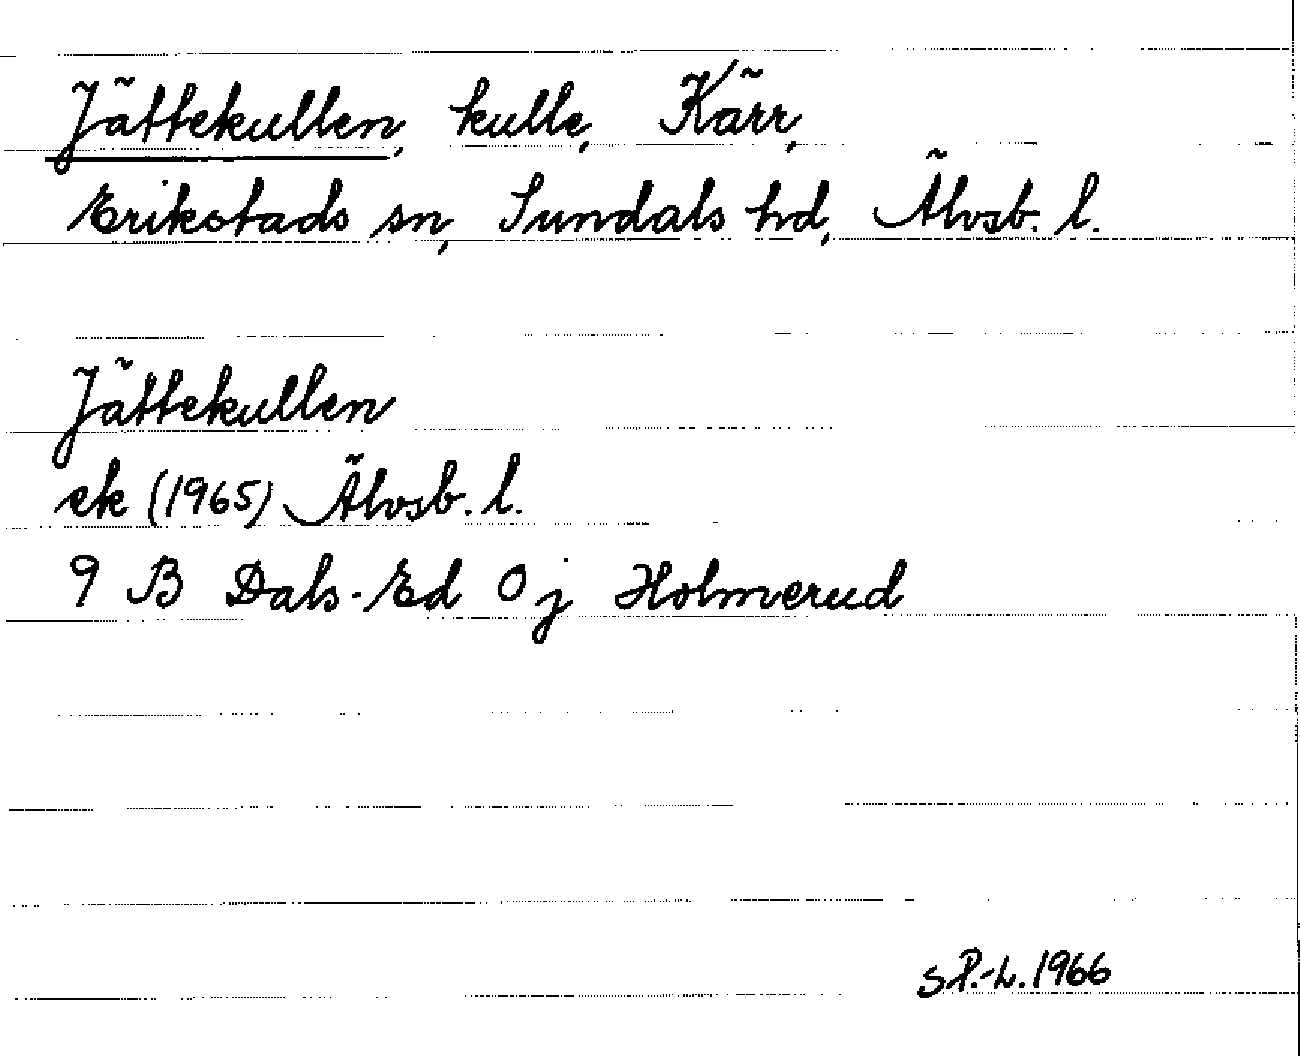 Jättekullen, kulle, Kärr,
Erikstads sn, Sundals hd, Älvsb. l.
Jättekullen
ek (1965) Älvsb. l.
9 B Dals-Ed 0 j Holmerud
SP.-L. 1966